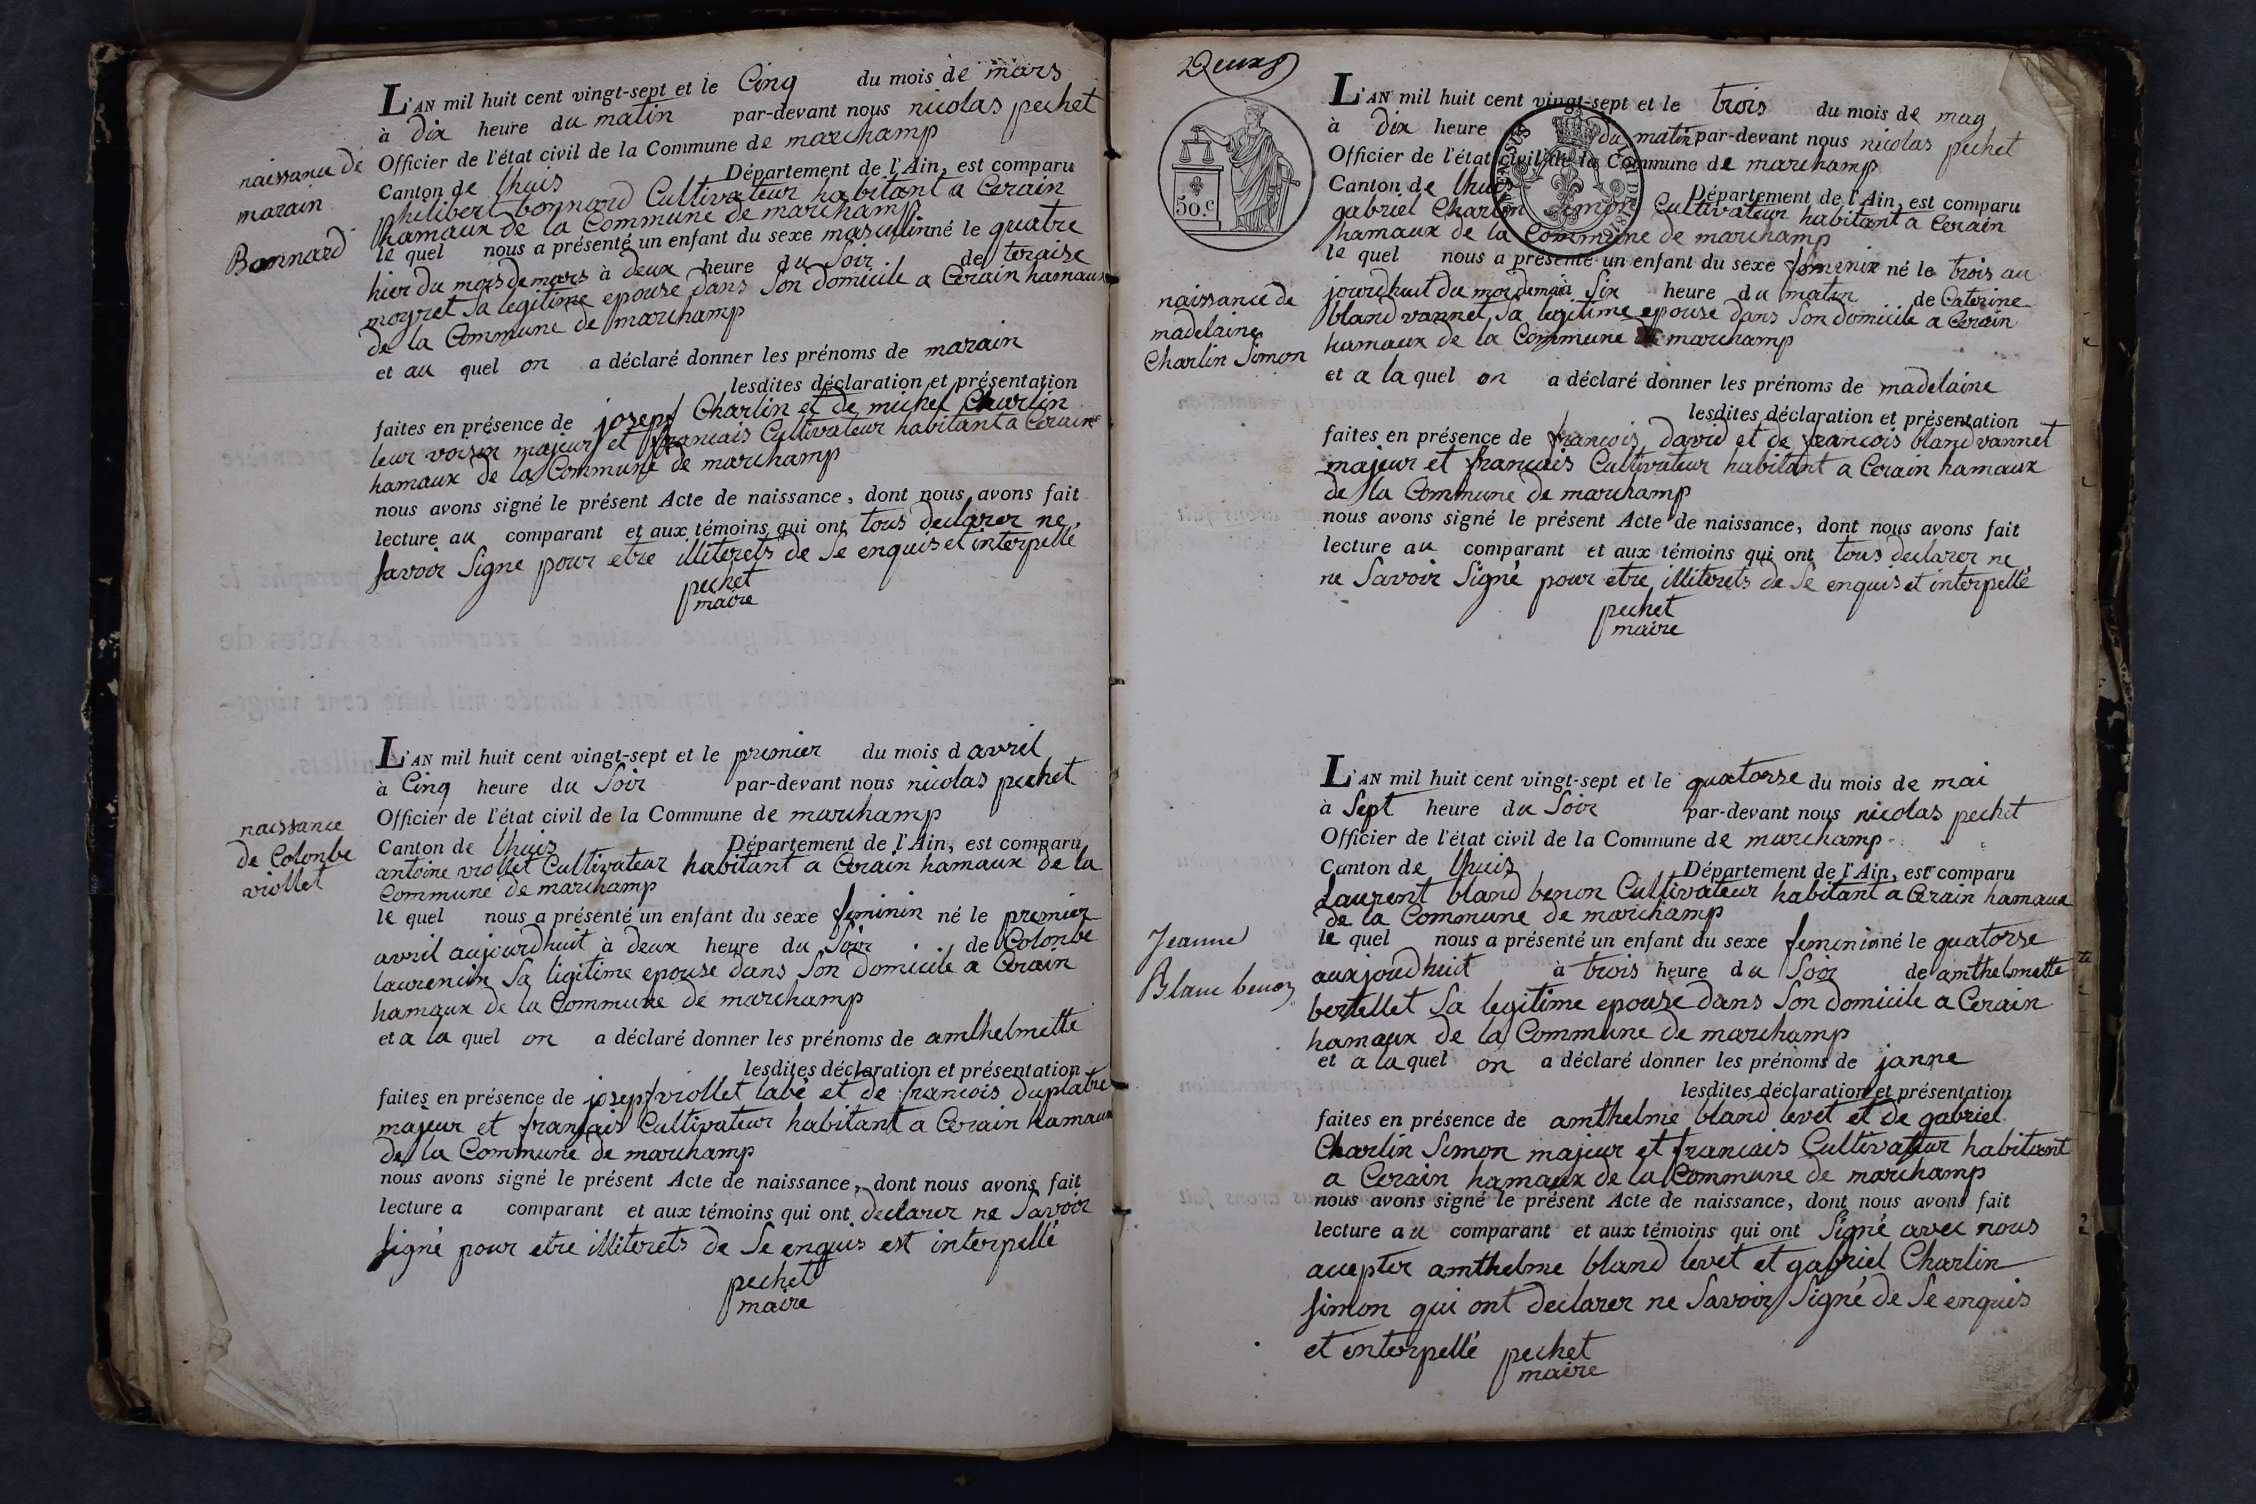 L'AN mil huit cent vingt-sept et le Cinq du mois de mars
à dix heure du matin par-devant nous nicolas pechet
Officier de l'état civil de la Commune de marchamp
Canton de lhuis Département de l'Ain, est comparu
philibert bonnard Cultivateur habitant a Cerain
hamaux de la Commune de marchamp
le quel nous a présenté un enfant du sexe masculin né le quatre
hier du mois de mars à deux heure du Soir de teraise
moyret Sa legitime epouse dans Son domicile a Cerain hamaux
de la Commune de marchamp
et au quel on a déclaré donner les prénoms de marain
lesdites déclaration et présentation
faites en présence de josepf Charlin et de michel Charlin
leur voisin majeur et francais Cultivateur habitant a Cerain
hamaux de la Commune de marchamp
nous avons signé le présent Acte de naissance, dont nous avons fait
lecture au comparant et aux témoins qui ont tous declarer ne
Savoir Signe pour etre illiterets de Se enquis et interpellé
pechet
maire
naissance de
marain
Bonnard
L'AN mil huit cent vingt-sept et le premier du mois d avril
à Cinq heure du Soir par-devant nous nicolas pechet
Officier de l'état civil de la Commune de marchamp
Canton de lhuis Département de l'Ain, est comparu
antoine viollet Cultivateur habitant a Cerain hamaux de la
Commune de marchamp
le quel nous a présenté un enfant du sexe feminin né le premier
avril aujourdhuit à deux heure du Soir de Colonbe
laurencin Sa ligitime epouse dans Son domicile a Cerain
hamaux de la Commune de marchamp
et a la quel on a déclaré donner les prénoms de amthelmette
lesdites déclaration et présentation
faites en présence de josepf viollet labé et de francois duplatre
majeur et français Cultivateur habitant a Cerain hamaux
de la Commune de marchamp
nous avons signé le présent Acte de naissance, dont nous avons fait
lecture a comparant et aux témoins qui ont declarer ne Savoir
Signé pour etre illiterets de Se enquis est interpellé
pechet
maire
naissance
de Colonbe
viollet
Deux
50.c
L'AN mil huit cent vingt-sept et le trois du mois de may
à dix heure du matin par-devant nous nicolas pechet
Officier de l'état civil de la Commune de marchamp
Canton de lhuis Département de l'Ain, est comparu
gabriel Charlin Simon Cultivateur habitant a Cerain
hamaux de la Commune de marchamp
le quel nous a présenté un enfant du sexe feminin né le trois au
jourdhuit du moi de mai Six heure du matin de Caterine
bland vannet Sa legitime epouse dans Son domicile a Cerain
hamaux de la Commune de marchamp
et a la quel on a déclaré donner les prénoms de madelaine
lesdites déclaration et présentation
faites en présence de francois david et de francois bland vannet
majeur et francais Cultivateur habitant a Cerain hamaux
de la Commune de marchamp
nous avons signé le présent Acte de naissance, dont nous avons fait
lecture au comparant et aux témoins qui ont tous declarer ne
ne Savoir Signé pour etre illiterets de Se enquis et interpellé
pechet
maire
naissance de
madelaine
Charlin Simon
L'AN mil huit cent vingt-sept et le quatorse du mois de mai
à Sept heure du Soir par-devant nous nicolas pechet
Officier de l'état civil de la Commune de marchamp
Canton de lhuis Département de l'Ain, est comparu
Laurent bland benon Cultivateur habitant a Cerain hamaux
de la Commune de marchamp
le quel nous a présenté un enfant du sexe feminin né le quatorse
auxjourdhuit à trois heure du Soir de amthelmette
bertellet Sa legitime epouse dans Son domicile a Cerain
hamaux de la Commune de marchamp
et a la quel on a déclaré donner les prénoms de janne
lesdites déclaration et présentation
faites en présence de amthelme bland levet et de gabriel
Charlin Simon majeur et francais Cultivateur habitant
a Cerain hamaux de la Commune de marchamp
nous avons signé le présent Acte de naissance, dont nous avons fait
lecture au comparant et aux témoins qui ont Signé avec nous
accepter amthelme bland levet et gabriel Charlin
Simon qui ont declarer ne Savoir Signé de Se enquis
et interpellé pechet
maire
Jeanne
Blanc benon